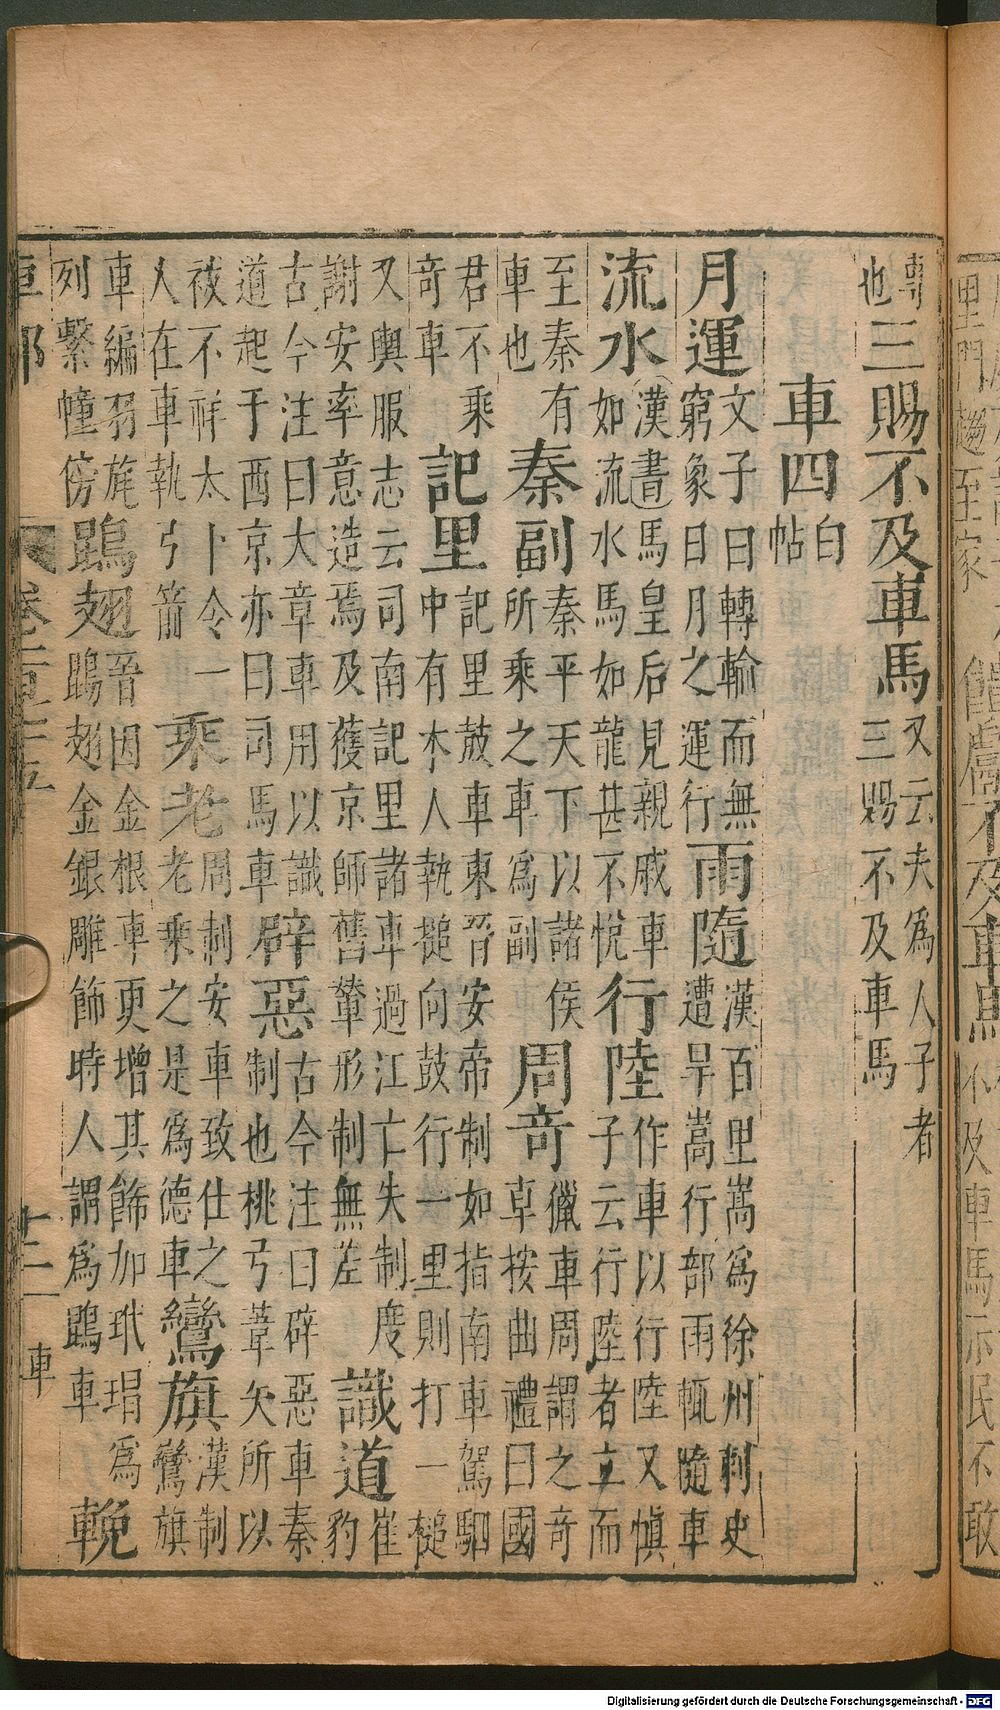 里門趨至家
饋鬻不及車馬
不及車馬示民不敢
專
也
三賜不及車馬
又云夫為人子者
三賜不及車馬
車四
白
帖
月運
文子曰轉輪而無
窮象日月之運行
雨隨
漢百里嵩為徐州刺史
遭旱嵩行部雨輒隨車
流水
漢書馬皇后見親戚車
如流水馬如龍甚不悅
行陸
作車以行陸又慎
子云行陸者立而
至秦有
車也
秦副
秦平天下以諸侯
所乘之車為副
周竒
獵車周謂之竒
草按曲禮曰國
君不乘
竒車
記里
記里鼓車東晉安帝制如指南車駕駟
中有木人執槌向鼓行一里則打一槌
又輿服志云司南記里諸車過江亡失制度
謝安率意造焉及獲京師舊輦形制無差
識道
崔
豹
古今注曰大章車用以識
道起于西京亦曰司馬車
辟惡
古今注曰辟惡車秦
制也桃弓葦矢所以
祓不祥太卜令一
人在車執弓箭
乘老
周制安車致仕之
老乘之是為德車
鸞旗
漢制
鸞旗
車編羽旄
列繫幢傍
鵾翅
晉因金根車更增其飾加玳瑁為
鵾翅金銀雕飾時人謂為鵾車
輓
車部
十二
車
Digitalisierung gefördert durch die Deutsche Forschungsgemeinschaft - DFG